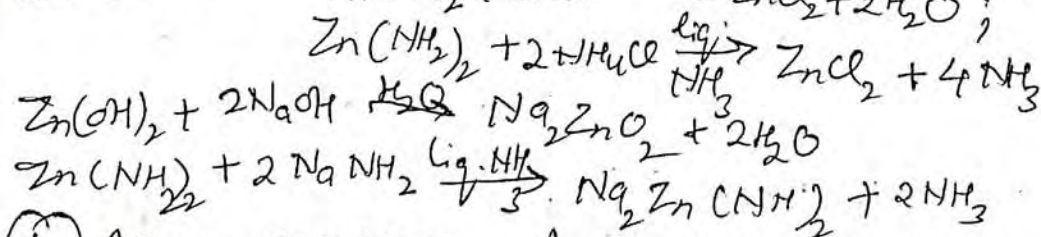 ZnCl₂ + 2H₂O ;
Zn(NH₂)₂ + 2NH₄Cl liq. NH₃ → ZnCl₂ + 4NH₃
Zn(OH)₂ + 2NaOH H₂O → Na₂ZnO₂ + 2H₂O
Zn(NH₂)₂ + 2NaNH₂ Liq. NH₃ → Na₂Zn(NH)₂ + 2NH₃